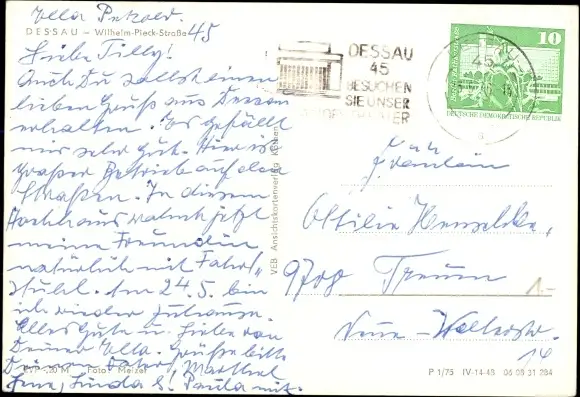 Ella Petzold.
DESSAU – Wilhelm-Pieck-Straße 45
Liebe Tilly!
Auch Du sollst einen
lieben Gruß aus Dessau
erhalten. Es gefällt
mir sehr gut. Hier ist
großer Betrieb auf den
Straßen. In diesem
Hochhaus wohnt jetzt
meine Freundin
natürlich mit Fahr-
stuhl. Am 24.5. bin
ich wieder zuhause.
Alles Gute u. Liebe von
Deiner Ella. Grüße bitte
Deinen Vater, Marthel
Linda Paula mit.
EVP -,20 M Foto: Melzer
VEB Ansichtskartenverlag Köthen
DESSAU
45
BESUCHEN
SIE UNSER
LANDESTHEATER
45
10
DEUTSCHE DEMOKRATISCHE REPUBLIK
Fräulein
Ottilie
9708 Treuen
Neue
14
1.-
P 1/75 IV-14-48 06 08 31 284